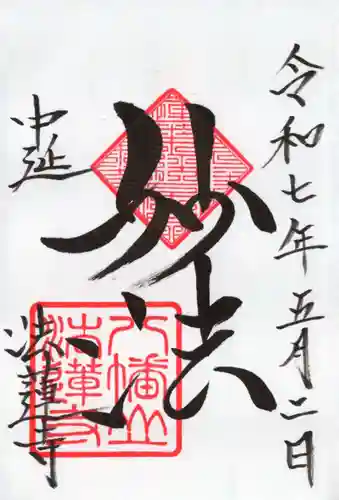 令和七年五月二日
妙法
中延
法蓮寺
八幡山
法蓮寺